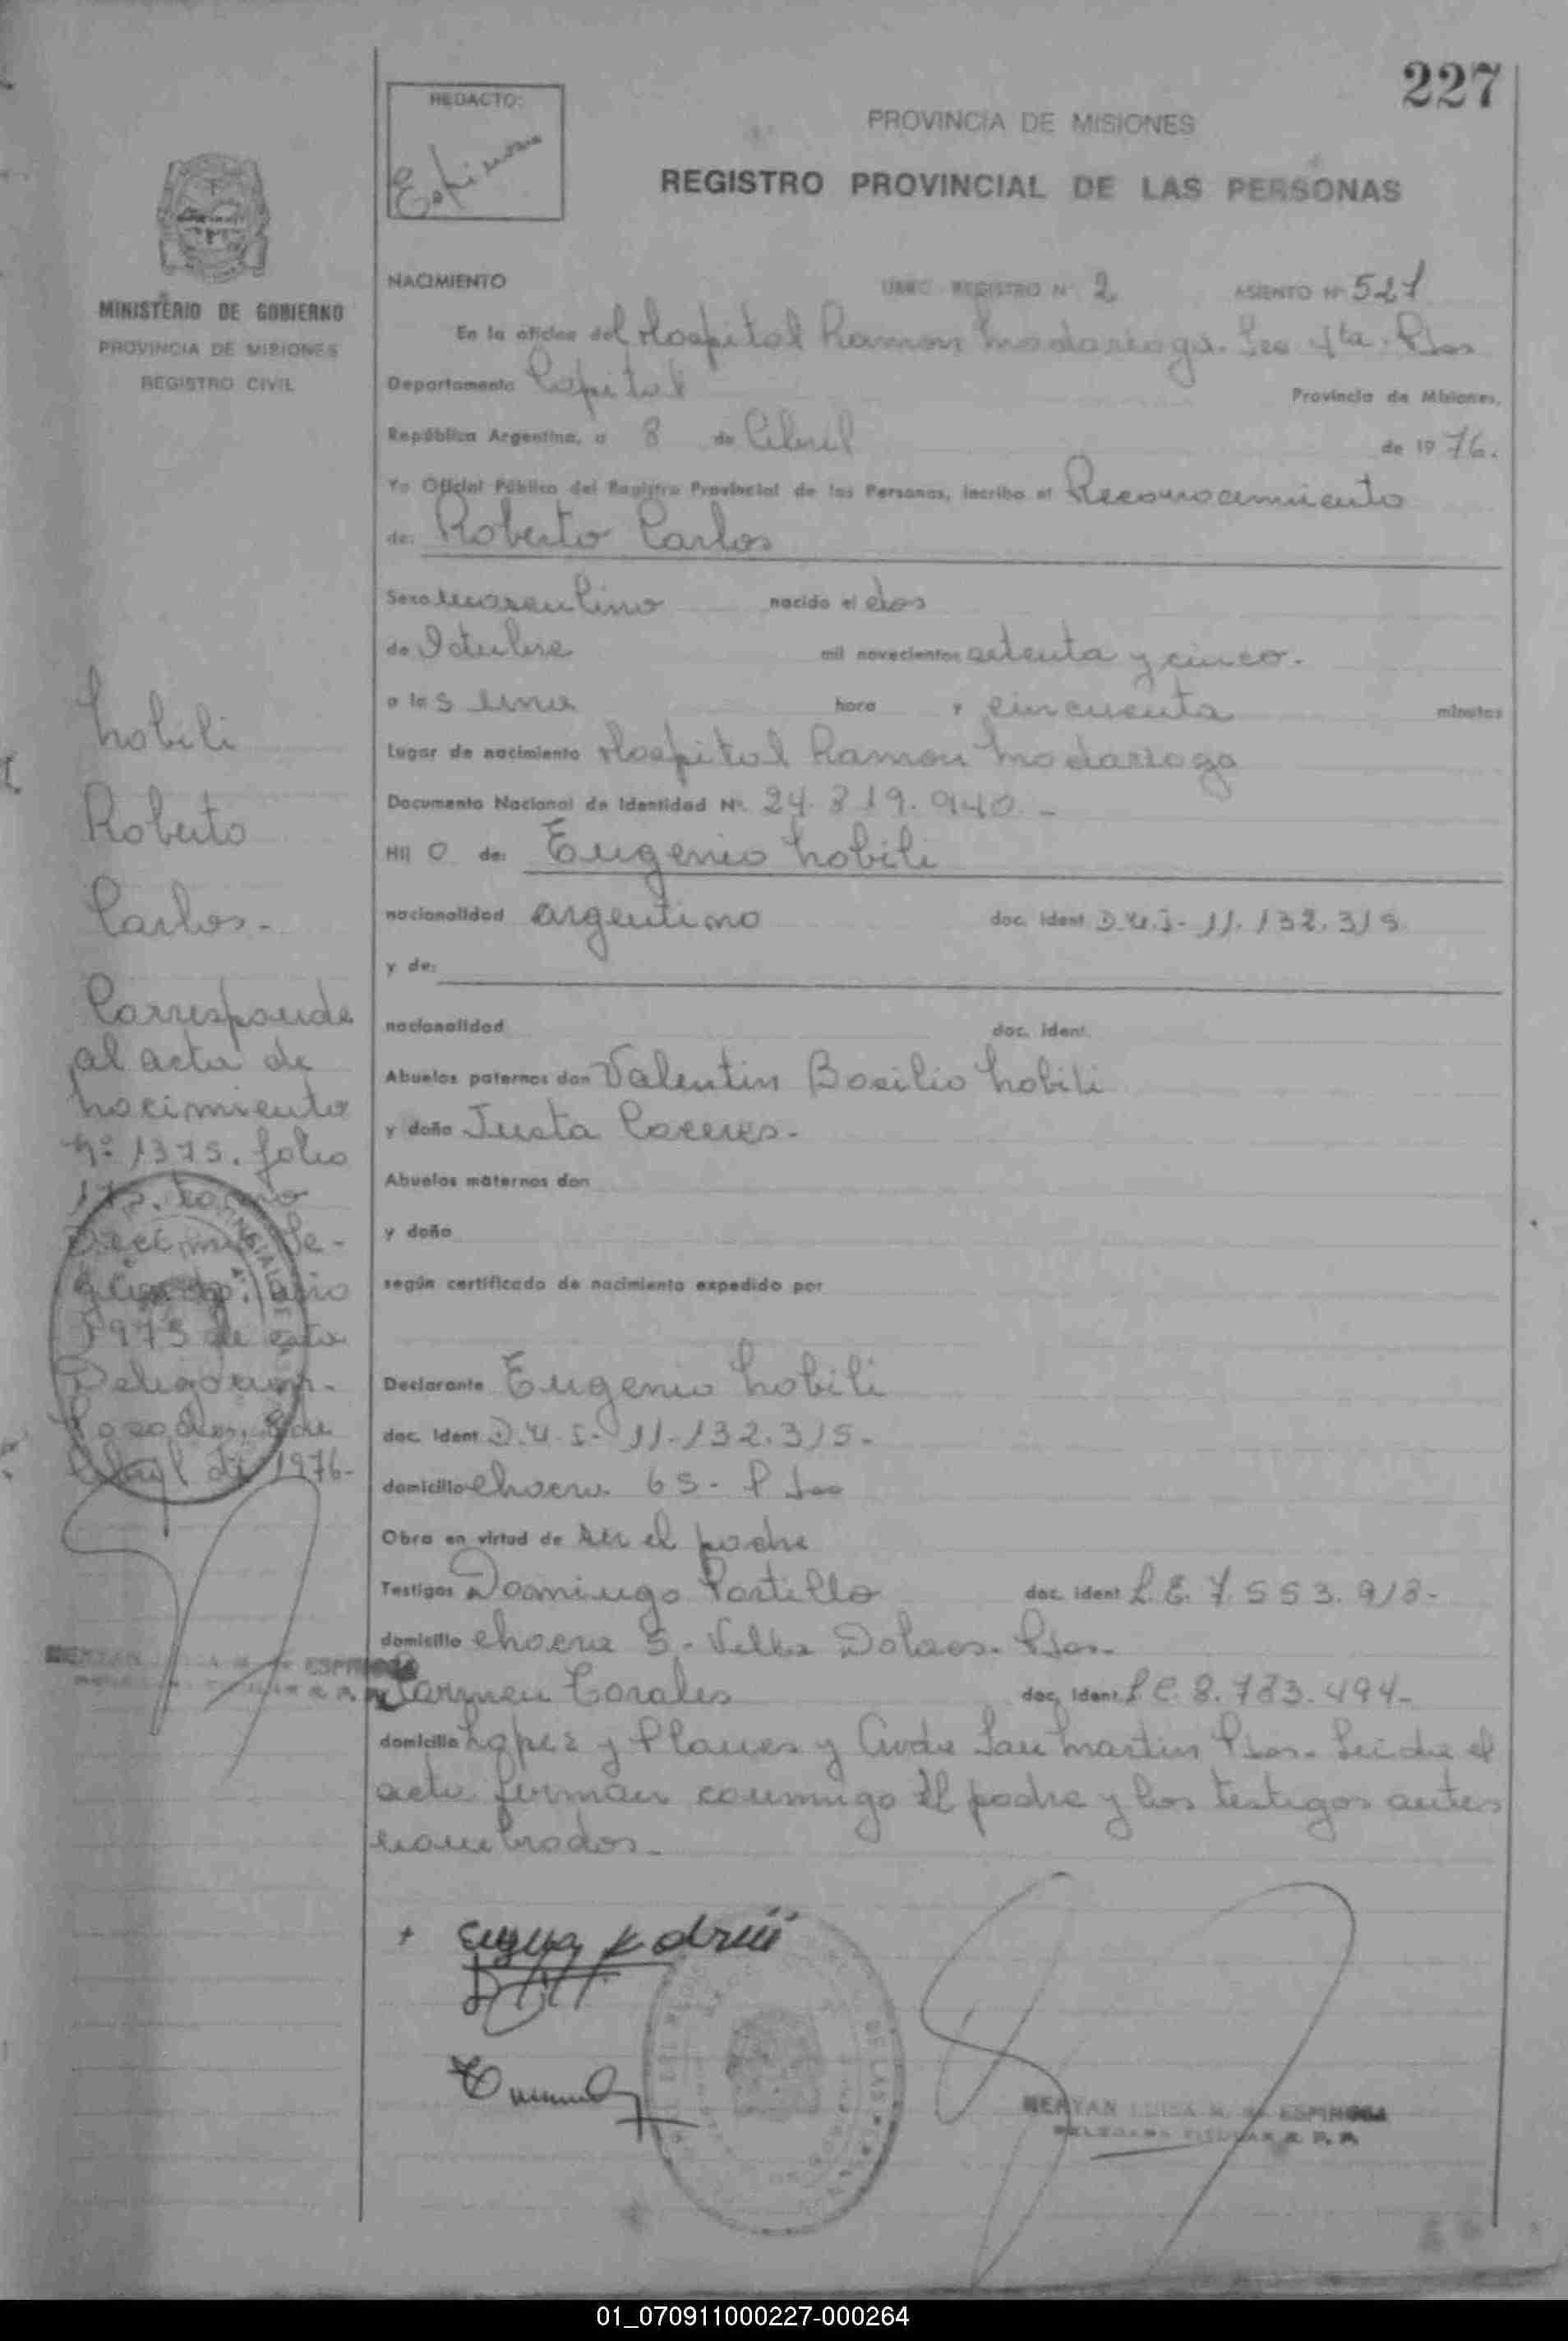 227
REDACTO:
PROVINCIA DE MISIONES
REGISTRO PROVINCIAL DE LAS PERSONAS
MINISTERIO DE GOBIERNO
PROVINCIA DE MISIONES
REGISTRO CIVIL
NACIMIENTO REGISTRO Nº 2 ASIENTO Nº 527
En la oficina del Hospital Ramon Madariaga. Sec 4ta. Pdas
Departamento Capital Provincia de Misiones,
República Argentina, a 8 de Abril de 1976.
Yo Oficial Público del Registro Provincial de las Personas, inscribo el Reconocimiento
de: Roberto Carlos
Sexo masculino nacido el dos
de Octubre mil novecientos setenta y cinco.
a las una hora y cincuenta minutos
Lugar de nacimiento Hospital Ramon Madariaga
Documento Nacional de Identidad Nº 24.819.940 -
Hij o de: Eugenio Nobili
nacionalidad argentino doc. ident D.U.I- 11.132.315
y de:
nacionalidad doc. ident.
Abuelos paternos don Valentin Basilio Nobili
y doña Justa Caceres-
Abuelos maternos don
y doña
según certificado de nacimiento expedido por
Declarante Eugenio Nobili
doc. ident D.U.I- 11-132.315-
domicilio chacra 65- Pdas
Obra en virtud de ser el padre
Testigos Domingo Portillo doc. ident L.E. 7.553.918-
domicilio chacra 5- Villa Dolores- Pdas-
Carmen Corales doc. ident L C. 8.783.494-
domicilio Lopez y Planes y Avda San Martin Pdas- Leida el
acta firman conmigo el padre y los testigos antes
nombrados-
Nobili
Roberto
Carlos-
Corresponde
al acta de
nacimiento
Nº 1375. folio
175. tomo
Decimo Se-
gundo. año
1975 de esta
Delegacion-
Posadas, 8 de
Abril de 1976-
ESPINOSA
MERYAN LUISA M. de ESPINOSA
DELEGADA TITULAR R. P. P.
01_070911000227-000264